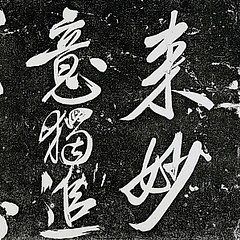 来妙
意獨追